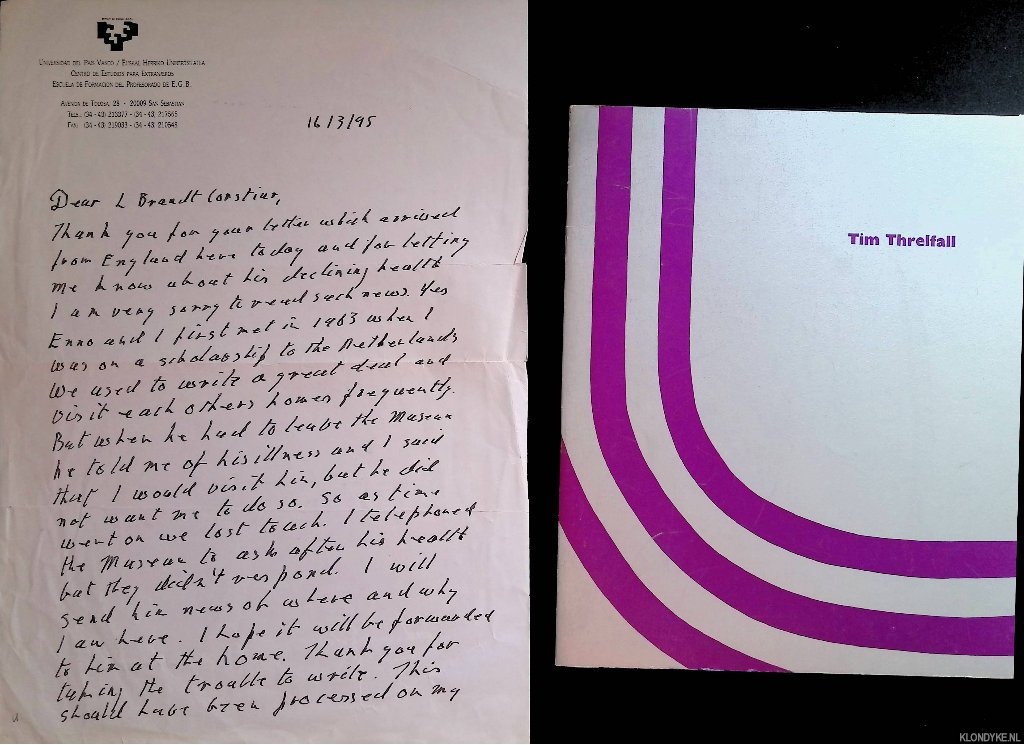 UNIVERSIDAD DEL PAIS VASCO / EUSKAL HERRIKO UNIBERTSITATEA
CENTRO DE ESTUDIOS PARA EXTRANJEROS
ESCUELA DE FORMACION DEL PROFESORADO DE E.G.B.
AVENIDA DE TOLOSA, 28 - 20009 SAN SEBASTIAN
16/3/95
Dear L Brandt Corstius,
Thank you for your letter which arrived
from England here today and for letting
me know about his declining health
I am very sorry to read such news. Yes
Enno and I first met in 1963 when I
was on a scholarship to the Netherlands
We used to write a great deal and
visit each others homes frequently.
But when he had to leave the Museum
he told me of his illness and I said
that I would visit him, but he did
not want me to do so. So as time
went on we lost touch. I telephoned
the Museum to ask after his health
but they didn't respond. I will
send him news of where and why
I am here. I hope it will be forwarded
to him at the home. Thank you for
taking the trouble to write. This
should have been processed on my
Tim Threlfall
KLONDYKE.NL